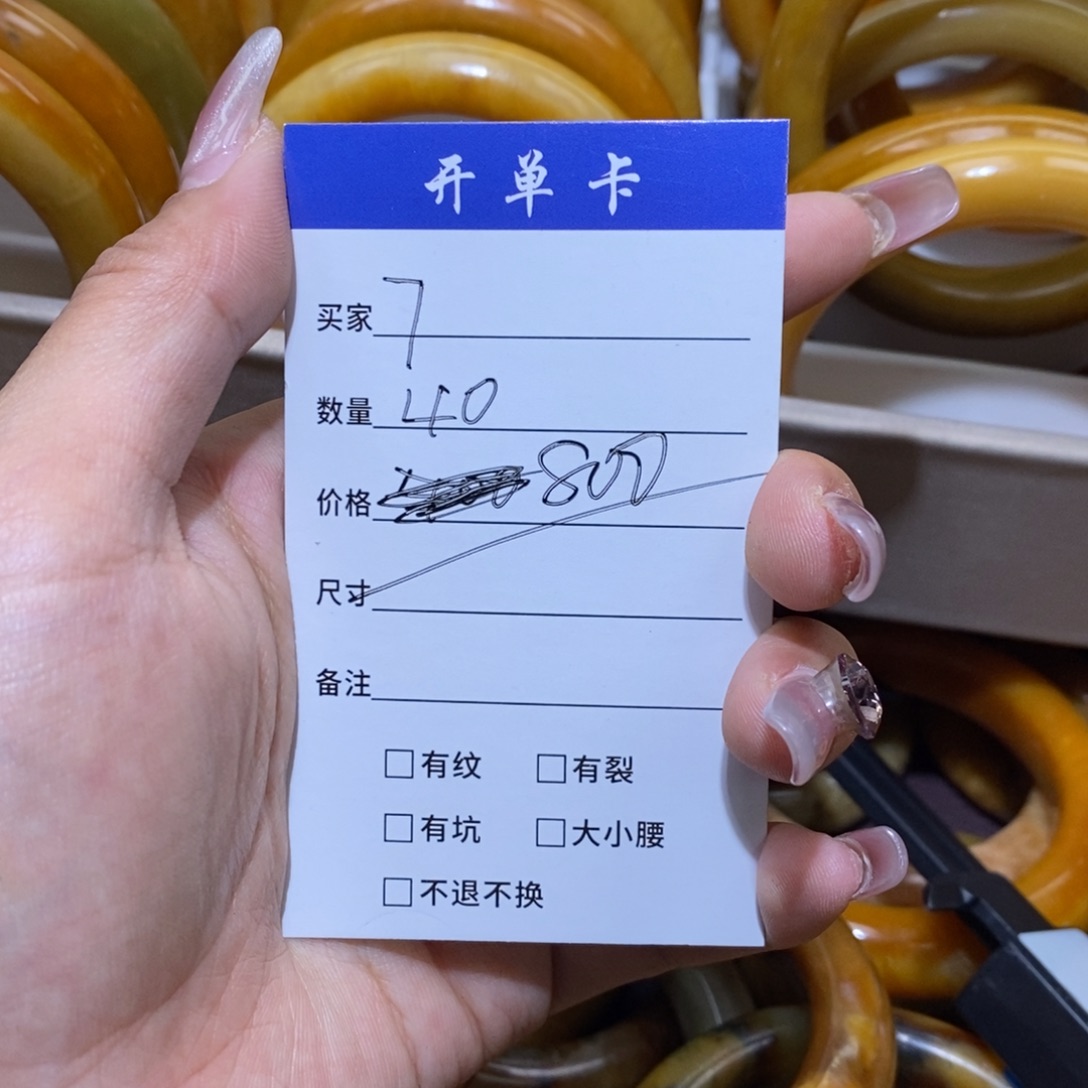 开单卡
买家 7
数量 40
价格 800
尺寸
备注
□有纹 □有裂
□有坑 □大小腰
□不退不换